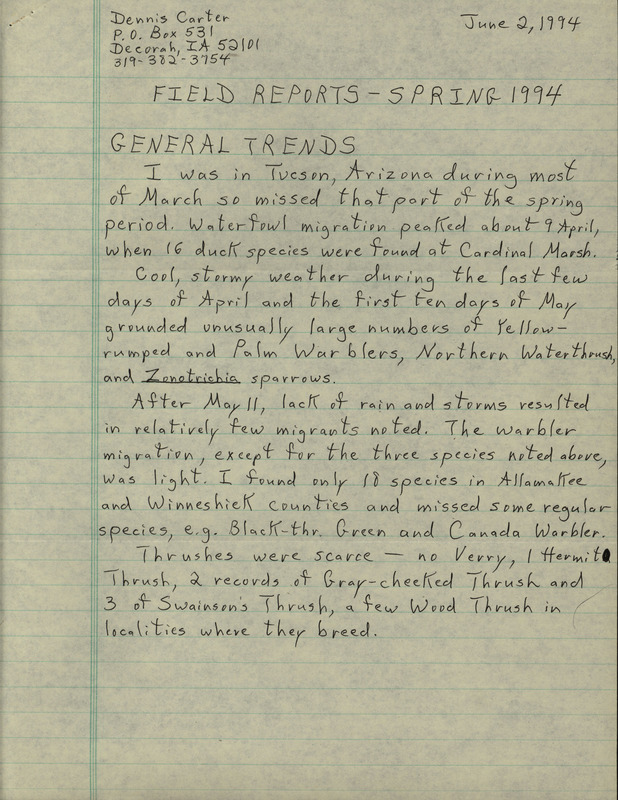 Dennis Carter
June 2, 1994
P.O. Box 531
Decorah, IA 52101
319-382-3754
FIELD REPORTS - SPRING 1994
GENERAL TRENDS
I was in Tucson, Arizona during most
of March so missed that part of the spring
period. Waterfowl migration peaked about 9 April,
when 16 duck species were found at Cardinal Marsh.
Cool, stormy weather during the last few
days of April and the first ten days of May
grounded unusually large numbers of Yellow-
rumped and Palm Warblers, Northern Waterthrush,
and Zonotrichia sparrows.
After May 11, lack of rain and storms resulted
in relatively few migrants noted. The warbler
migration, except for the three species noted above,
was light. I found only 18 species in Allamakee
and Winneshiek counties and missed some regular
species, e.g. Black-thr. Green and Canada Warbler.
Thrushes were scarce — no Verry, 1 Hermit
Thrush, 2 records of Gray-cheeked Thrush and
3 of Swainson's Thrush, a few Wood Thrush in
localities where they breed.